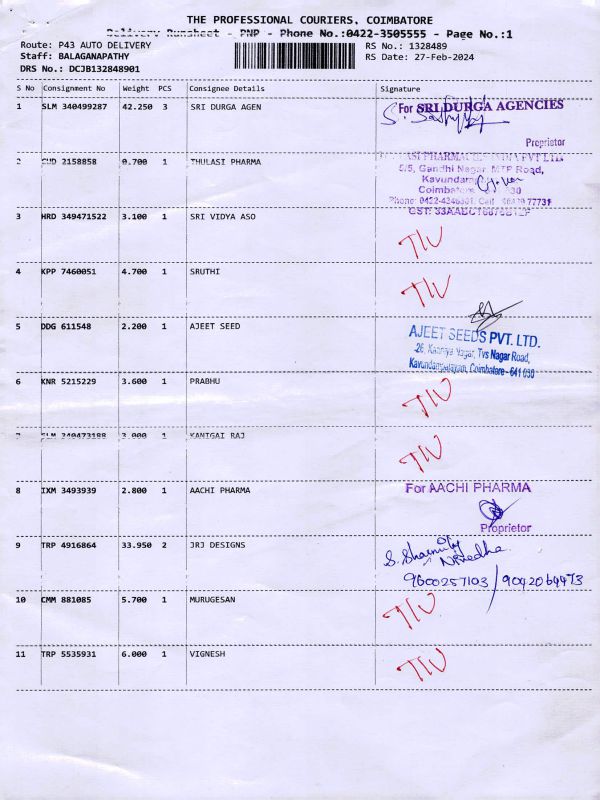 THE PROFESSIONAL COURIERS, COIMBATORE
Delivery Runsheet - PNP - Phone No.:0422-3505555 - Page No.:1
Route: P43 AUTO DELIVERY
Staff: BALAGANAPATHY
DRS No.: DCJB132848901
RS No.: 1328489
RS Date: 27-Feb-2024
S No Consignment No Weight PCS Consignee Details Signature
1 SLM 340499287 42.250 3 SRI DURGA AGEN
For SRI DURGA AGENCIES
Proprietor
2 2158858 0.700 1 THULASI PHARMA
PHARMA PVT LTD
5/5, Gandhi Nagar, MTP Road,
3 HRD 349471522 3.100 1 SRI VIDYA ASO
4 KPP 7460051 4.700 1 SRUTHI
5 DDG 611548 2.200 1 AJEET SEED
AJEET SEEDS PVT. LTD.
Nagar, Tvs Nagar Road,
Kavundampalayam, Coimbatore - 641 030
6 KNR 5215229 3.600 1 PRABHU
7 SLM 340473188 3.000 1 KANIGAI RAJ
8 IXM 3493939 2.800 1 AACHI PHARMA
For AACHI PHARMA
Proprietor
9 TRP 4916864 33.950 2 JRJ DESIGNS
9600257103 / 9042064473
10 CMM 881085 5.700 1 MURUGESAN
11 TRP 5535931 6.000 1 VIGNESH